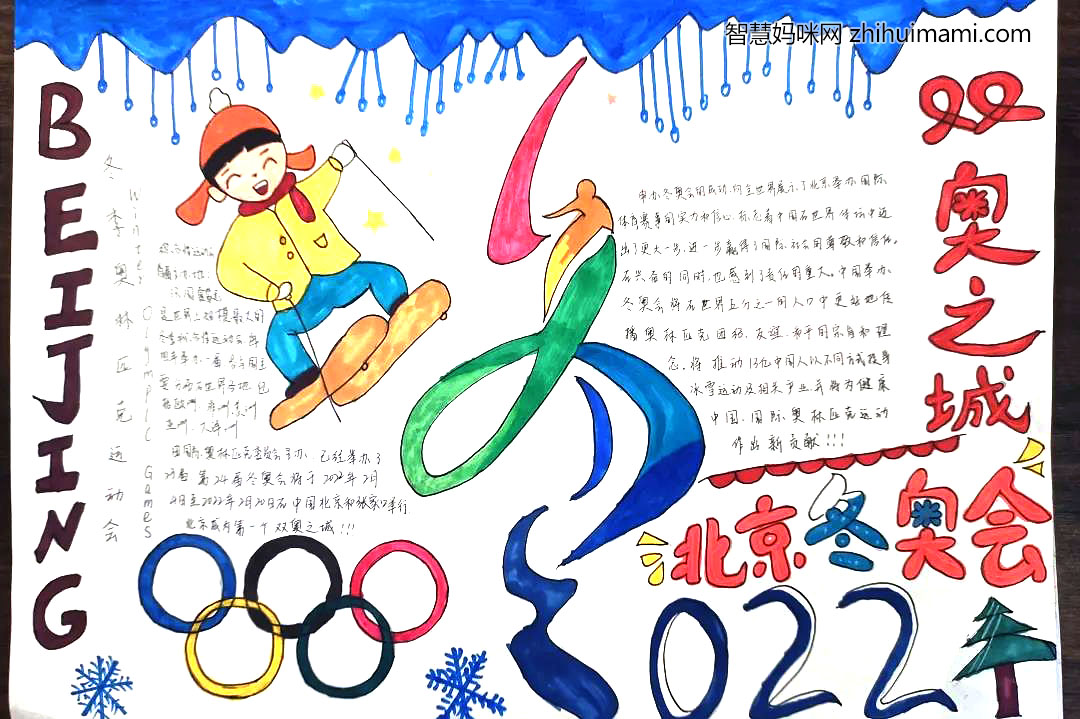 智慧妈咪网 zhihuimami.com
BEIJING
冬季奥林匹克运动会
Winter Olympic Games
是世界上规模最大的
冬季综合性运动会,每
四年举办一届
欧洲、亚洲
由国际奥林匹克委员会主办,已经举办了
第24届冬奥会将于2022年2月
4日至2022年2月20日在中国北京和张家口举行.
北京成为第一个双奥之城!!!
申办冬奥会的成功,向全世界展示了北京举办国际
体育赛事的实力和信心,标志着中国在世界体坛中迈
出了更大一步,进一步赢得了国际社会的尊敬和信任。
在兴奋的同时,也感到了责任的重大。中国举办
冬奥会将在世界五分之一的人口中更好地传
播奥林匹克团结、友谊、和平的宗旨和理
念,将推动13亿中国人以不同方式投身
冰雪运动及相关产业并将为健康
中国、国际奥林匹克运动
作出新贡献!!!
双奥之城
北京冬奥会
2022